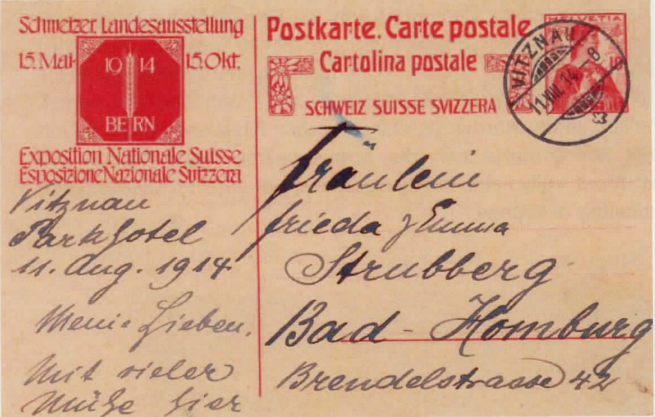 Schweizer. Landesausstellung
15. Mai 15. Okt.
19 14
BERN
Exposition Nationale Suisse
Esposizione Nazionale Svizzera
Postkarte. Carte postale
Cartolina postale
SCHWEIZ SUISSE SVIZZERA
HELVETIA
10
VITZNAU
11.VIII.14.-8
Vitznau
Parkhotel
11. Aug. 1914
Meine Lieben.
Mit vieler
Mühe hier
Fräulein
Frieda & Emma
Strubberg
Bad-Homburg
Brendelstrasse 42